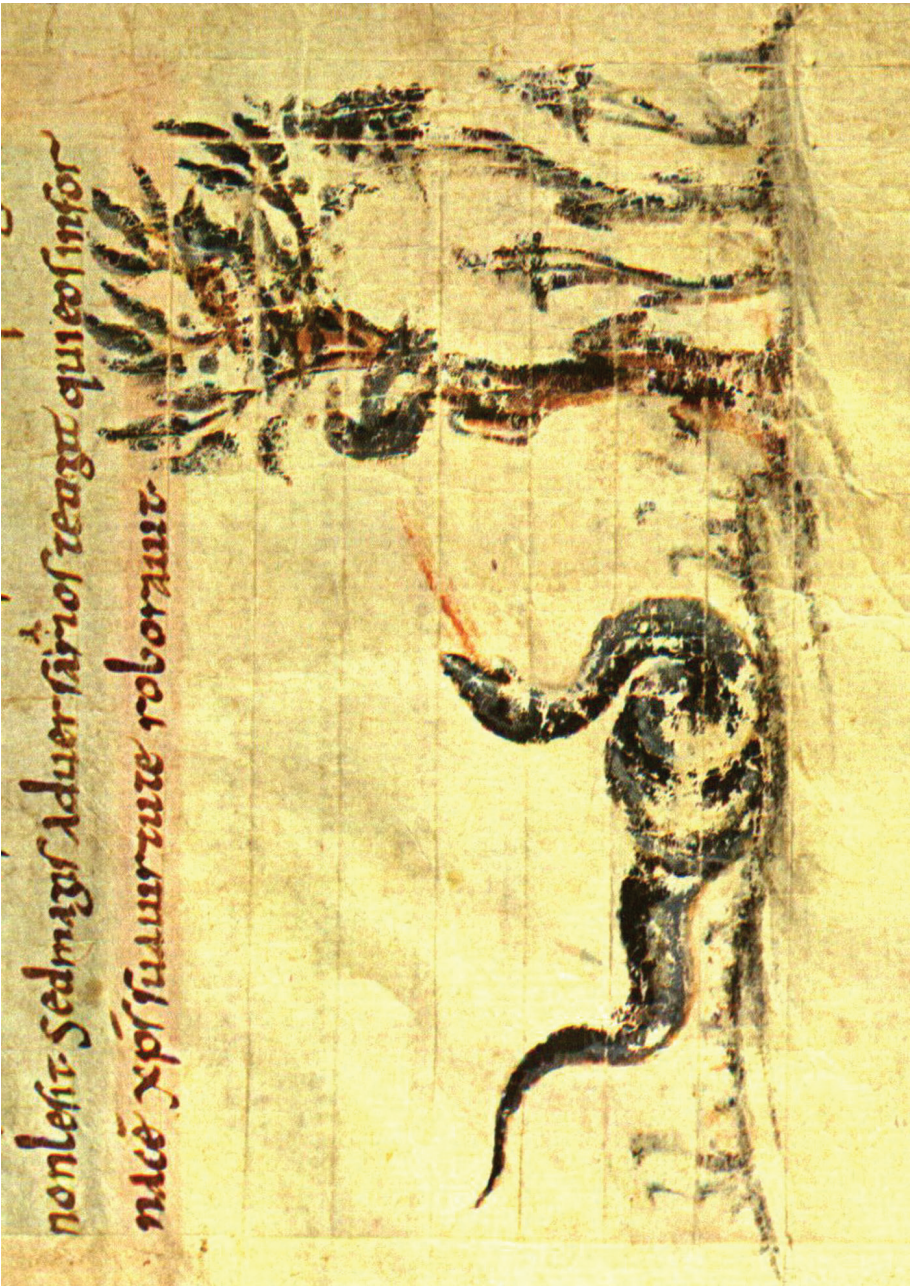 nonlesit· sedmagis aduersarios quieosinfor
nace xp̄s suauirtute roborauit·